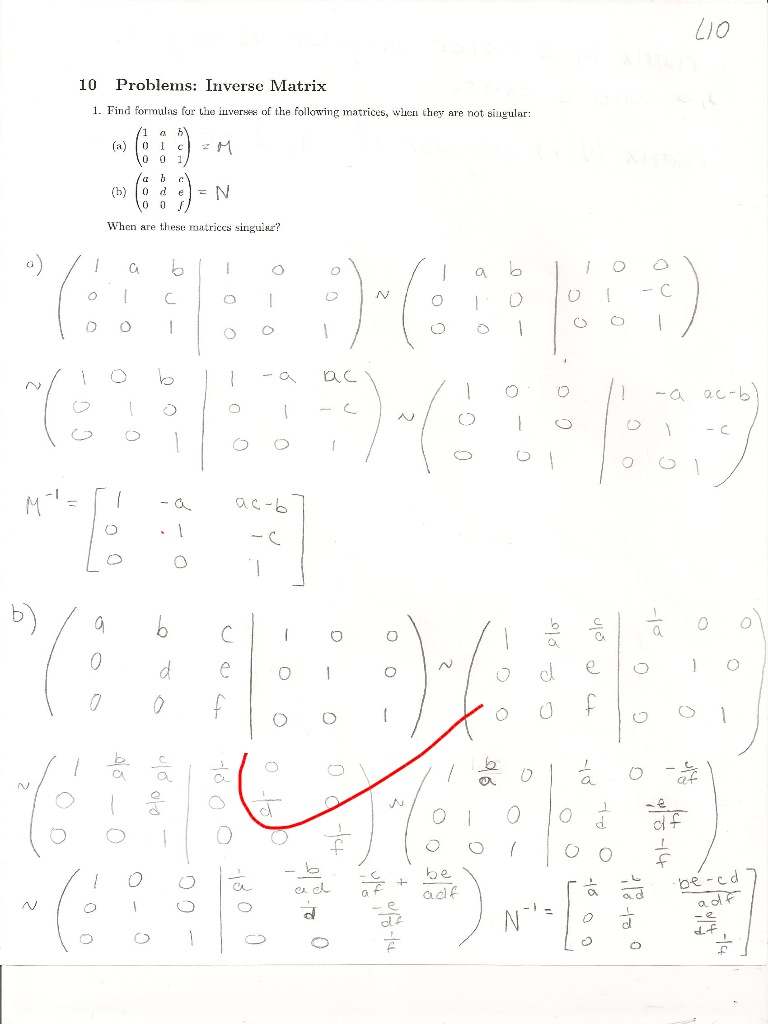 L10
10 Problems: Inverse Matrix
1. Find formulas for the inverses of the following matrices, when they are not singular:
(a) (1 a b; 0 1 c; 0 0 1) = M
(b) (a b c; 0 d e; 0 0 f) = N
When are these matrices singular?
a) (1 a b | 1 0 0; 0 1 c | 0 1 0; 0 0 1 | 0 0 1) ~ (1 a b | 1 0 0; 0 1 0 | 0 1 -c; 0 0 1 | 0 0 1)
~ (1 0 b | 1 -a ac; 0 1 0 | 0 1 -c; 0 0 1 | 0 0 1) ~ (1 0 0 | 1 -a ac-b; 0 1 0 | 0 1 -c; 0 0 1 | 0 0 1)
M⁻¹ = [1 -a ac-b; 0 1 -c; 0 0 1]
b) (a b c | 1 0 0; 0 d e | 0 1 0; 0 0 f | 0 0 1) ~ (1 b/a c/a | 1/a 0 0; 0 d e | 0 1 0; 0 0 f | 0 0 1)
~ (1 b/a c/a | 1/a 0 0; 0 1 e/d | 0 1/d 0; 0 0 1 | 0 0 1/f) ~ (1 b/a 0 | 1/a 0 -c/af; 0 1 0 | 0 1/d -e/df; 0 0 1 | 0 0 1/f)
~ (1 0 0 | 1/a -b/ad -c/af + be/adf; 0 1 0 | 0 1/d -e/df; 0 0 1 | 0 0 1/f) N⁻¹ = [1/a -b/ad be-cd/adf; 0 1/d -e/df; 0 0 1/f]